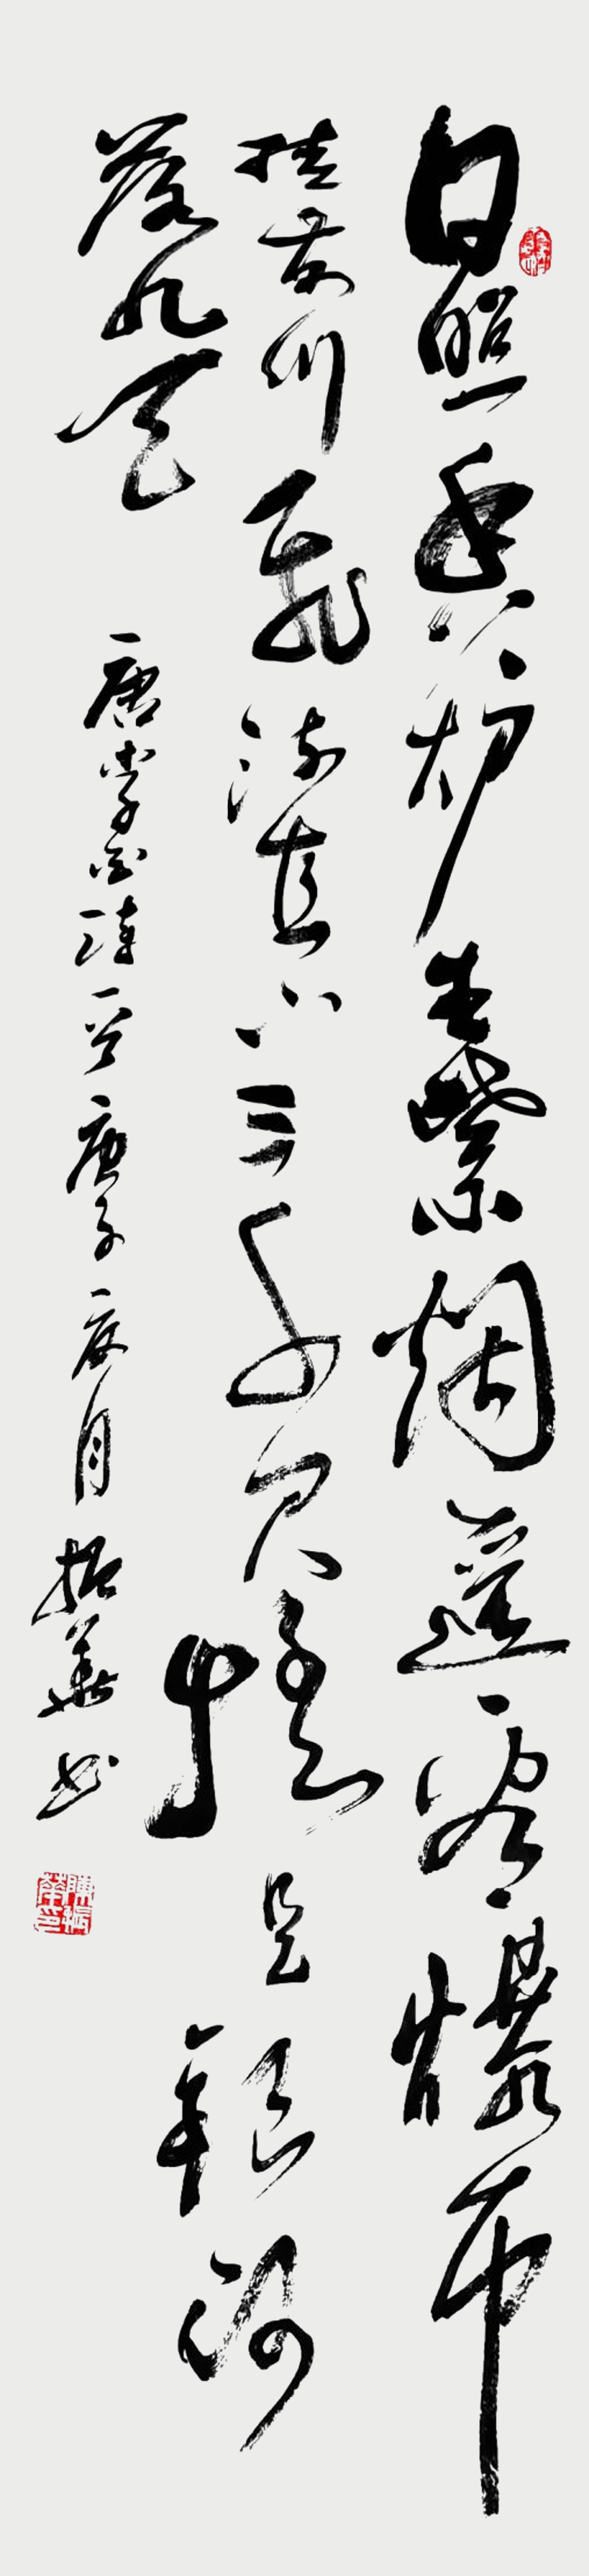 日照香炉生紫烟遥看瀑布
挂前川飛流直下三千尺疑是銀河
落九天
唐李白詩一首庚子夏月振華书